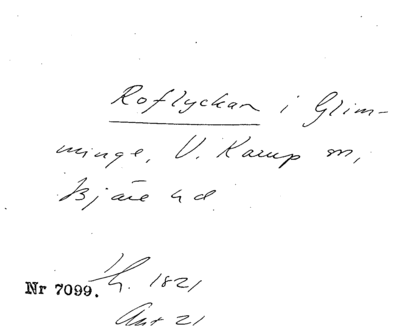 Roflyckan i Glim-
minge, V. Karup sn,
Bjäre hd
Nr 7099. Lh. 1821
Akt 21